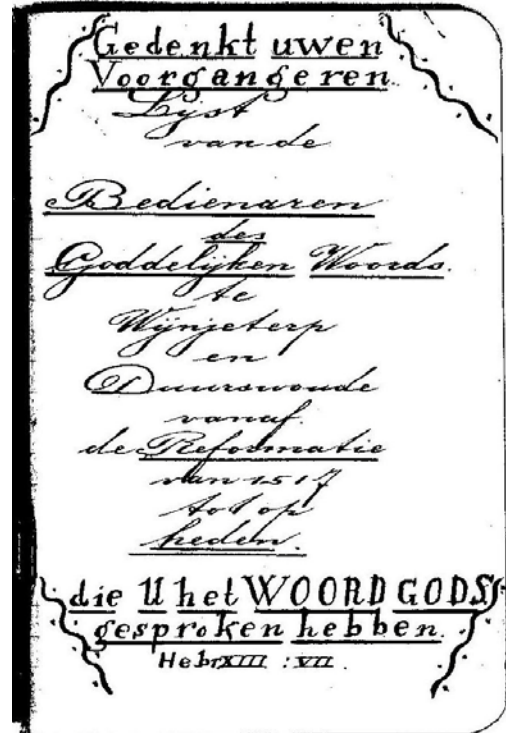 Gedenkt uwen
Voorgangeren
Lijst
van de
Bedienaren
des
Goddelijken Woords.
te
Wijnjeterp
en
Duurswoude
vanaf.
de Reformatie
van 1517
tot op
heden.
die U het WOORD GODS
gesproken hebben.
Hebr XIII : VII.